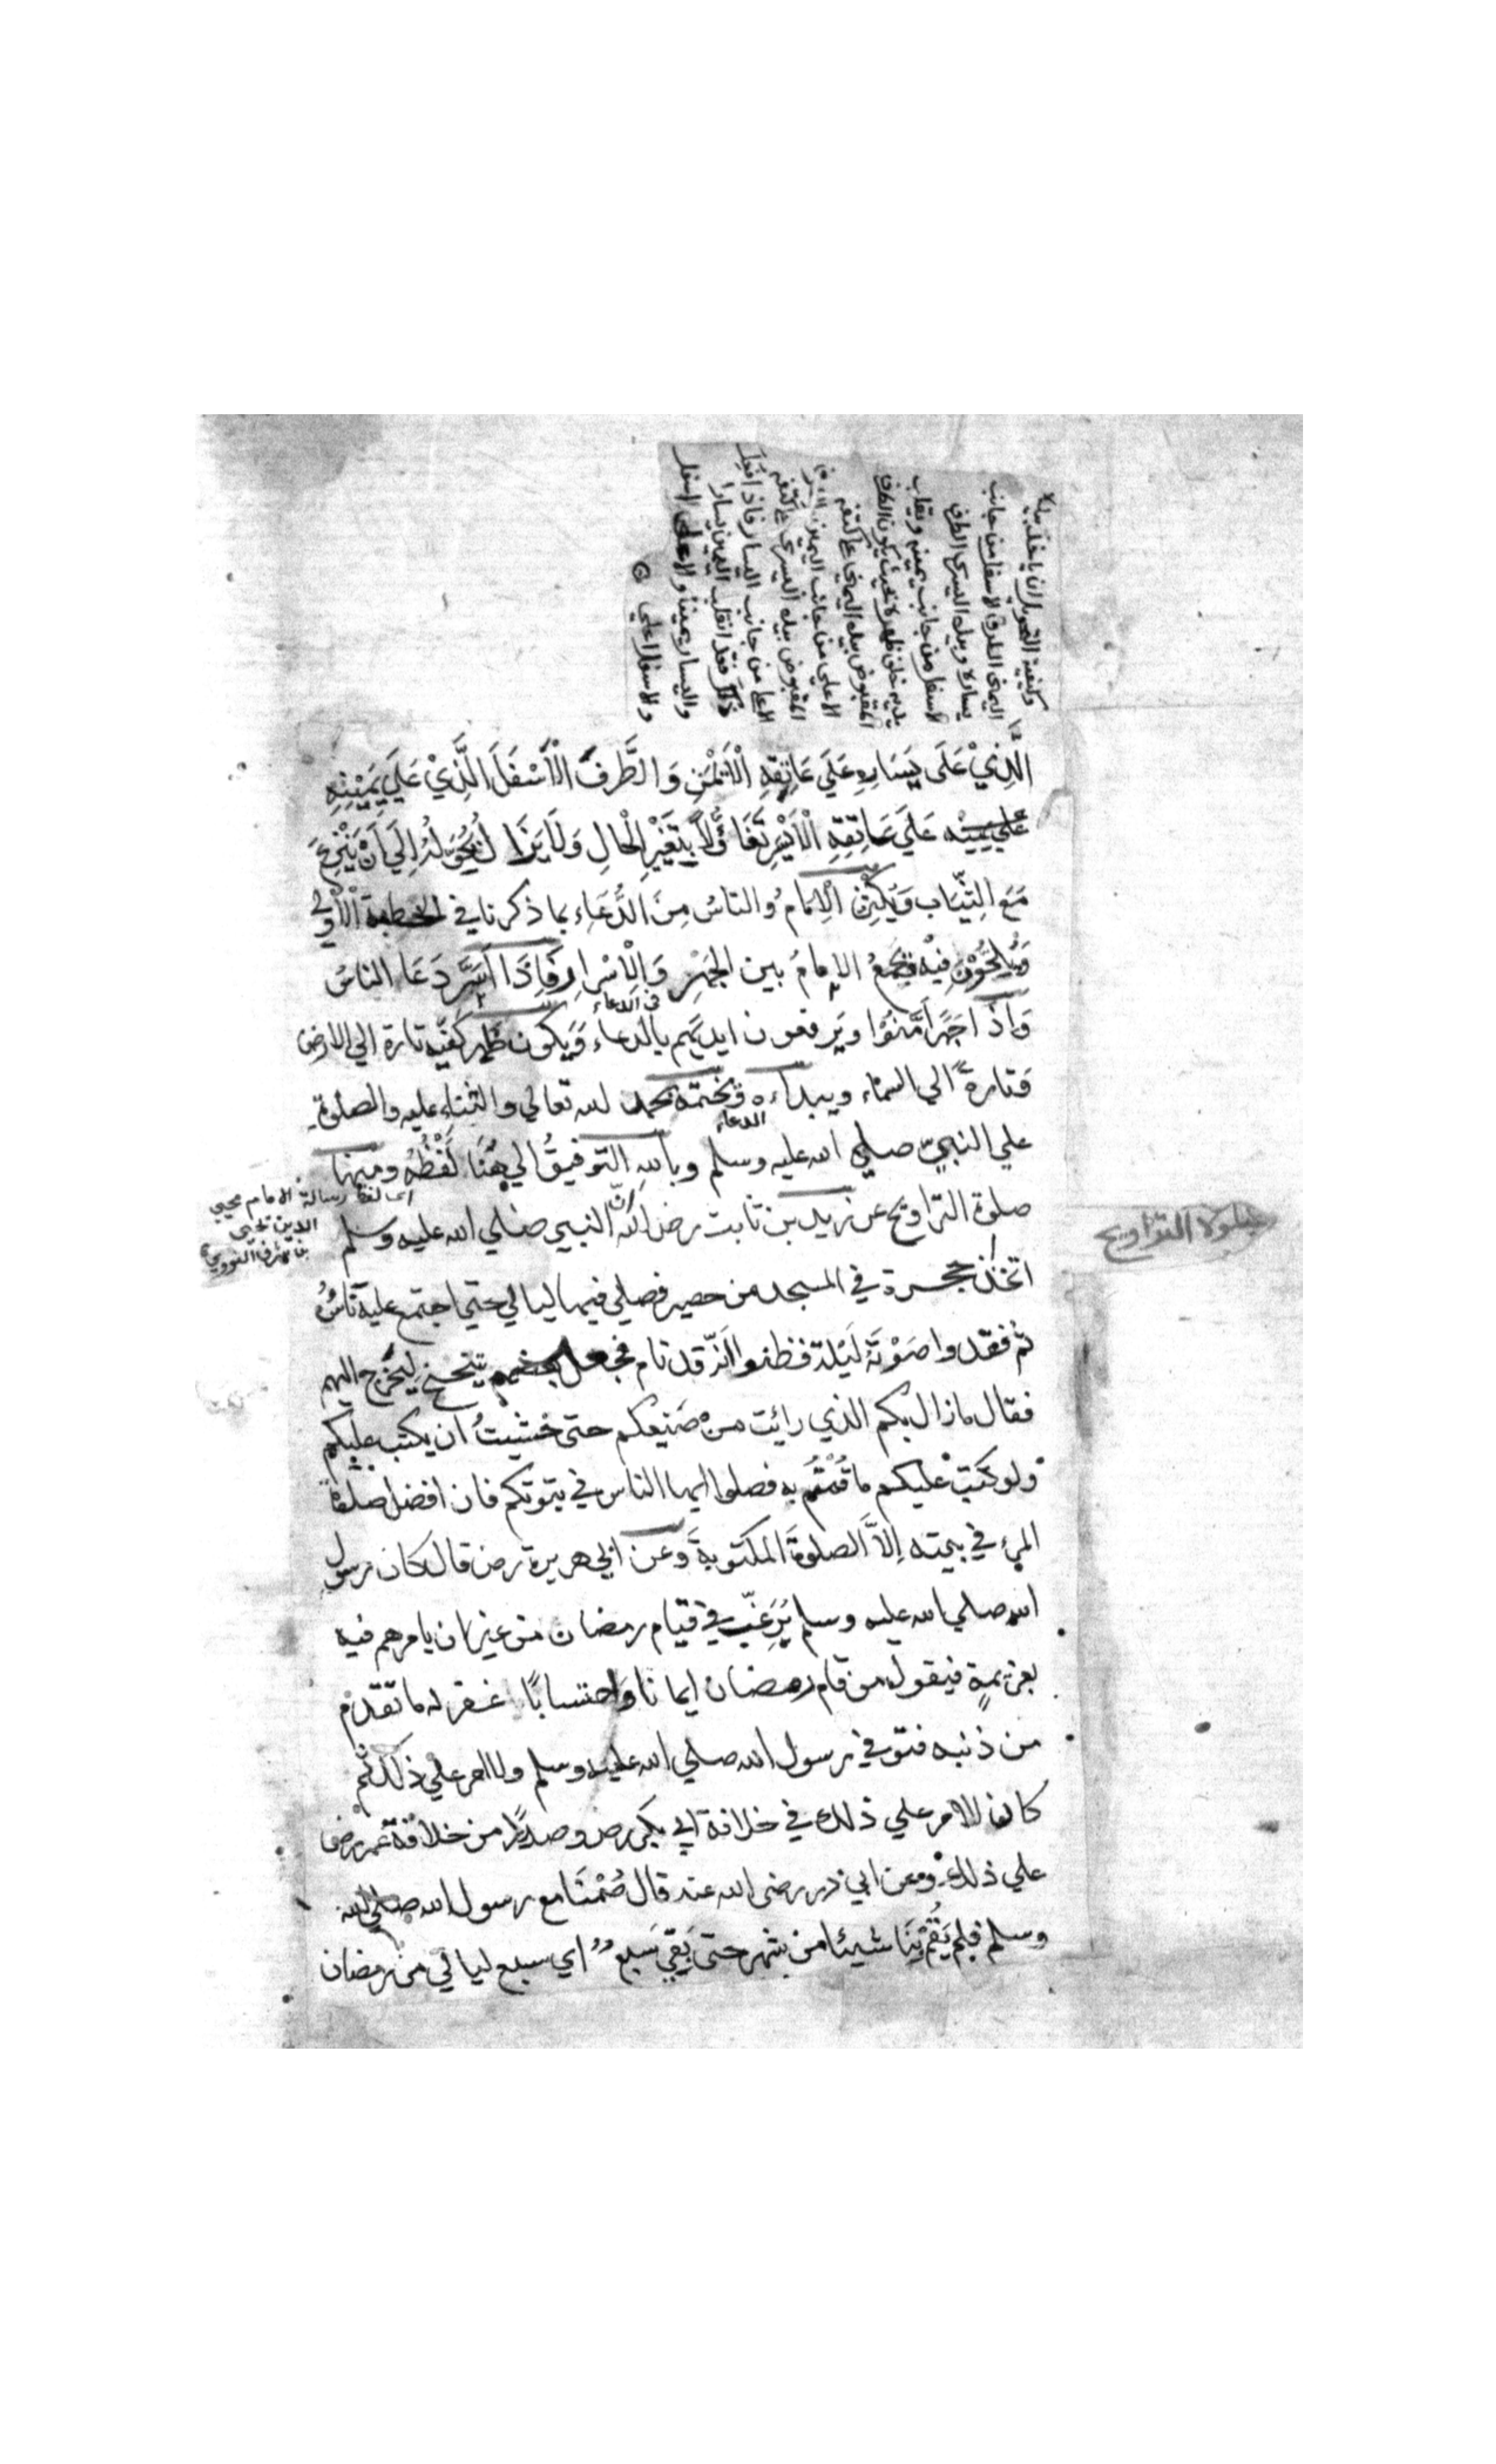 وكيفية التحويل ان ياخذ بيده
اليمنى الطرق الاسفل من جانب
يساره وبيده اليسرى الطرف
الاسفل من جانب يمينه ويقلب
يديه خلف ظهره بحيث يكون الطرف
المقبوض بيده اليمنى على كتفه
الاعلى من جانب اليمين
المقبوض بيده اليسرى على كتفه
الاعلى من جانب اليسار فاذا فعل
ذلك فقد انقلب اليمين يسارا
واليسار يمينا والاعلى اسفل
والاسفل اعلى
الَّذِيْ عَلَى يَسَارِهِ عَلَي عَاتِقِهِ الْأَيْمَنِ وَالطَّرَفَ الْأَسْفَلَ الَّذِيْ عَلَي يَمِيْنِهِ
علي يمينه عَلَي عَاتِقِهِ الْأَيْسَرِ تَفَاؤُلًا بِتَغَيُّرِ الْحَالِ وَلَا يَزَالُ يُحَوِّلُهُ إِلَي أَنْ يَنْزِعَ
مَعَ الثِّيَابِ وَيُكْثِرُ الْاِمَامُ وَالناسُ مِنَ الدُّعَاءِ بما ذكرنا في الخطبة الْأُوْلي
وَيُلِحُّوْنَ فِيْهِ وَيَجْمَعُ الاِمامُ بين الجَهْرِ وَالْإِسْرَارِ فَاِذَا أَسَرَّ دَعَا الناسُ
في الدعاء
وَاذَا جَهَرَ أَمَّنُوْا ويَرفعون ايديَهم بالدعاء وَيكون ظهر كفيه تارة الي الارض
وَتارةً الي السماء ويبداءه ويختمه بحمد لله تعالي والثناء عليه والصلوة
الدعاء
علي النبيّ صلي الله عليه وسلم وبالله التوفيقُ الي هُنَا لَفْظُهُ ومنها
اى لفظ رسالة الامام محيي
الدين يحيى
بن شرف النووي
صلوة التراويح عن زيد بن ثابت رضـ انّ النبي صلي الله عليه وسلم
صلوة التراويح
اتخذ حجرة في المسجد من حصير فصلي فيها ليالي حتي اجتمع عليه ناسٌ
ثم فقدوا صَوْتَهُ لَيْلة فظنوا انّه قد نام فجعل بعضهم يتنحنح لِيَخْرج اليهم
فقال ما زال بكم الذي رايت من صَنِيعكم حتى خشيتُ ان يكتب عليكم
ولو كتبت عليكم ما قُمْتُمْ به فصلوا ايها الناس في بيوتكم فان افضل صلوة
المرء في بيته اِلاَّ الصلوةَ المكتوبةَ وَعن ابي هريرة رضـ قال كان رسول
الله صلي الله عليه وسلم يُرَغِّب في قيام رمضان من غير ان يامرهم فيه
بعزيمةٍ فيقول من قام رمضان ايمانا وَاحتسابًا غفر له ما تقدم
من ذنبه فتوفي رسول الله صلي الله عليه وسلم والامر علي ذلك ثم
كان الامر علي ذلك في خلافة ابي بكر رضـ وصدرًا من خلافة عمر رضـ
علي ذلك وعن ابي ذر رضى الله عنه قال صُمْنَا مع رسول الله صلي الله
وسلم فلم يَقُمْ بِنَا شيئا من شهر حتى بَقِيَ سَبْعٌ اي سبع ليالي من رمضان